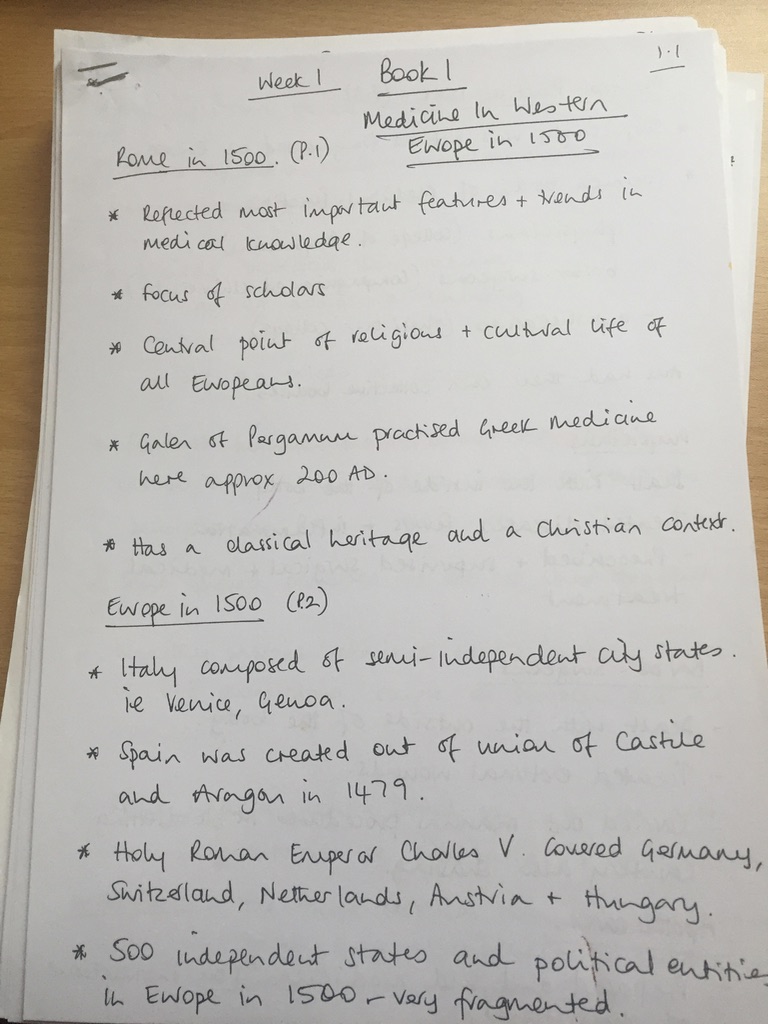 Week 1 Book 1 1.1
Medicine In Western
Europe in 1500
Rome in 1500. (P.1)
* Reflected most important features + trends in
medical knowledge.
* focus of scholars
* Central point of religious + cultural life of
all Europeans.
* Galen of Pergamum practised Greek medicine
here approx 200 AD.
* Has a classical heritage and a Christian context.
Europe in 1500 (P.2)
* Italy composed of semi-independent city states.
ie Venice, Genoa.
* Spain was created out of union of Castile
and Aragon in 1479.
* Holy Roman Emperor Charles V. Covered Germany,
Switzerland, Netherlands, Austria + Hungary.
* 500 independent states and political entities
in Europe in 1500 - very fragmented.